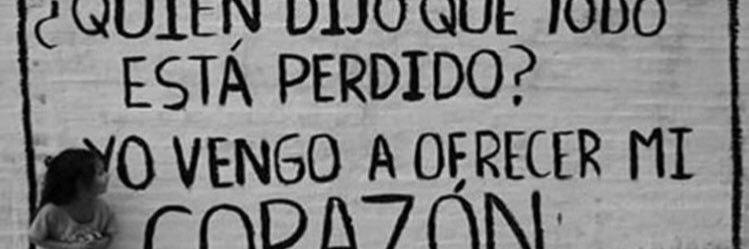 ¿QUIÉN DIJO QUE TODO
ESTÁ PERDIDO?
YO VENGO A OFRECER MI
CORAZÓN